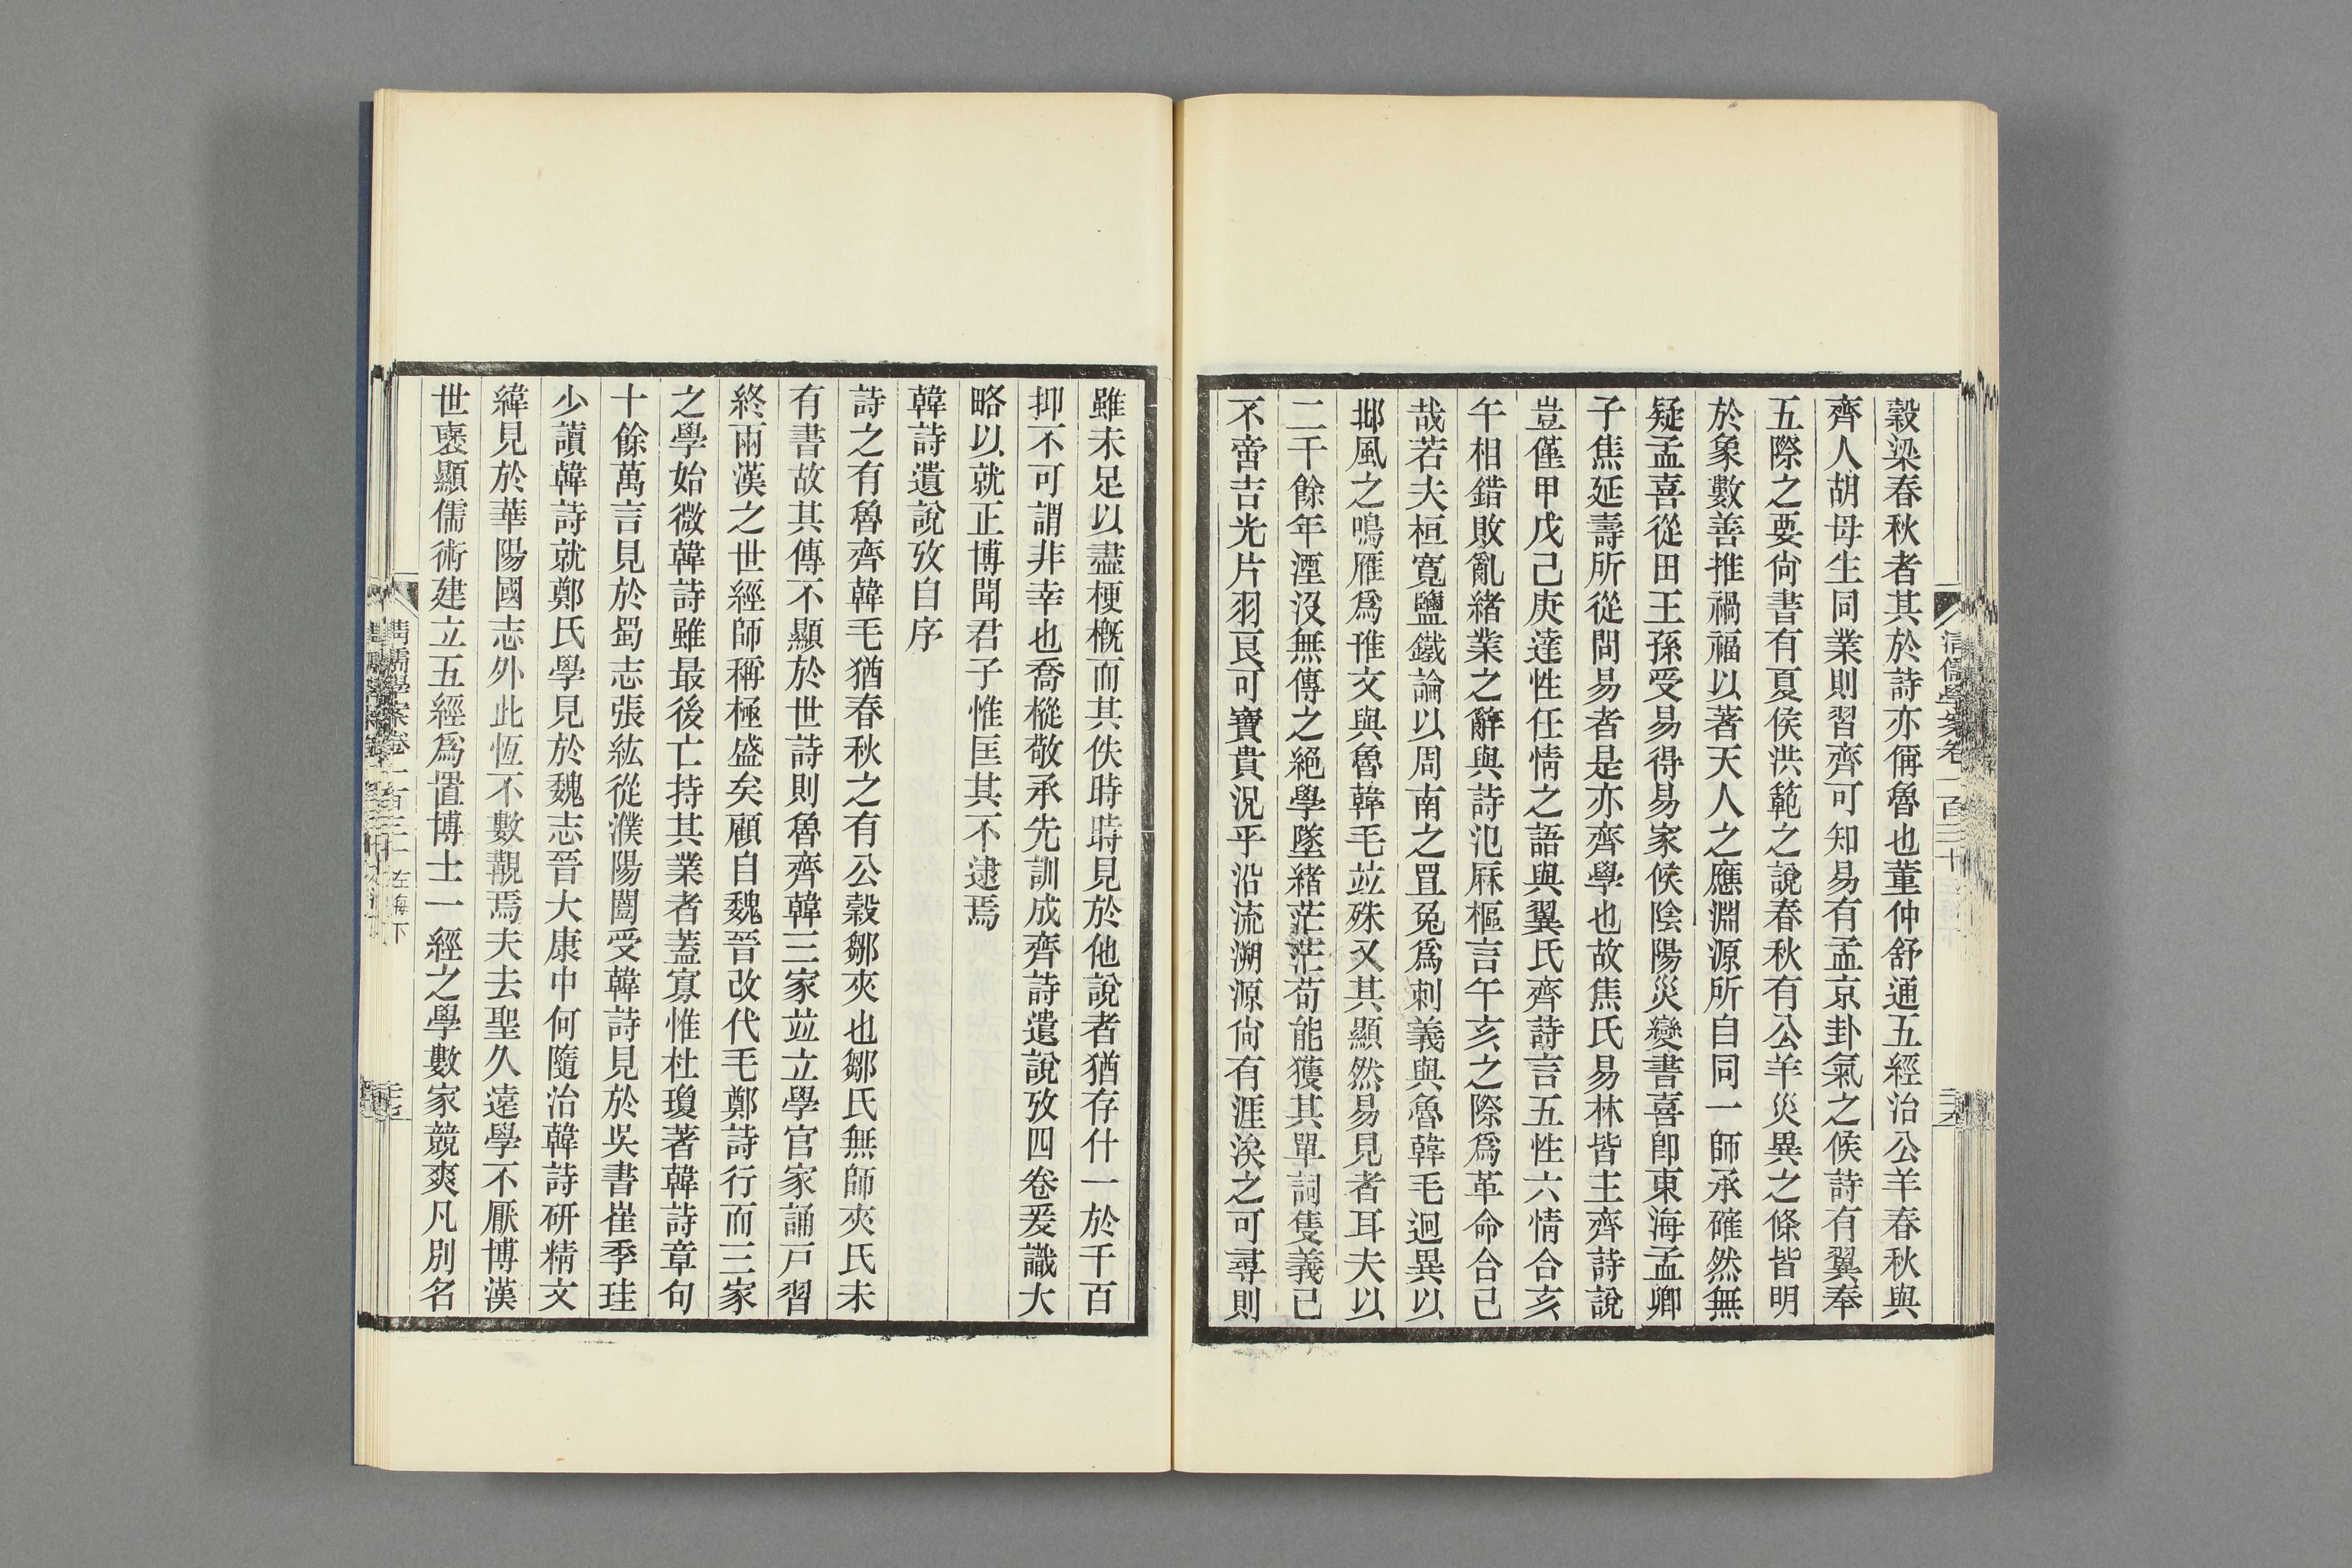 穀梁春秋者其於詩亦稱魯也董仲舒通五經治公羊春秋與
齊人胡母生同業則習齊可知易有孟京卦氣之候詩有翼奉
五際之要尙書有夏侯洪範之說春秋有公羊災異之條皆明
於象數善推禍福以著天人之應淵源所自同一師承確然無
疑孟喜從田王孫受易得易家候陰陽災變書喜卽東海孟卿
子焦延壽所從問易者是亦齊學也故焦氏易林皆主齊詩說
豈僅甲戊己庚達性任情之語與翼氏齊詩言五性六情合亥
午相錯敗亂緒業之辭與詩氾厤樞言午亥之際爲革命合己
哉若夫桓寬鹽鐵論以周南之罝兔爲刺義與魯韓毛迥異以
邶風之鳴雁爲㻪文與魯韓毛竝殊又其顯然易見者耳夫以
二千餘年湮沒無傳之絕學墜緒茫茫苟能獲其單詞隻義己
不啻吉光片羽良可寶貴況乎沿流溯源尙有涯涘之可尋則
清儒學案卷一百三十
雖未足以盡梗概而其佚時時見於他說者猶存什一於千百
抑不可謂非幸也喬樅敬承先訓成齊詩遺說攷四卷爰識大
略以就正博聞君子惟匡其不逮焉
韓詩遺說攷自序
詩之有魯齊韓毛猶春秋之有公穀鄒夾也鄒氏無師夾氏未
有書故其傳不顯於世詩則魯齊韓三家竝立學官家誦戸習
終兩漢之世經師稱極盛矣顧自魏晉改代毛鄭詩行而三家
之學始微韓詩雖最後亡持其業者蓋寡惟杜瓊著韓詩章句
十餘萬言見於蜀志張紘從濮陽闓受韓詩見於吳書崔季珪
少讀韓詩就鄭氏學見於魏志晉大康中何隨治韓詩研精文
緯見於華陽國志外此恆不數觀焉夫去聖久遠學不厭博漢
世裦顯儒術建立五經爲置博士一經之學數家競爽凡別名
清儒學案卷一百三十 左海下